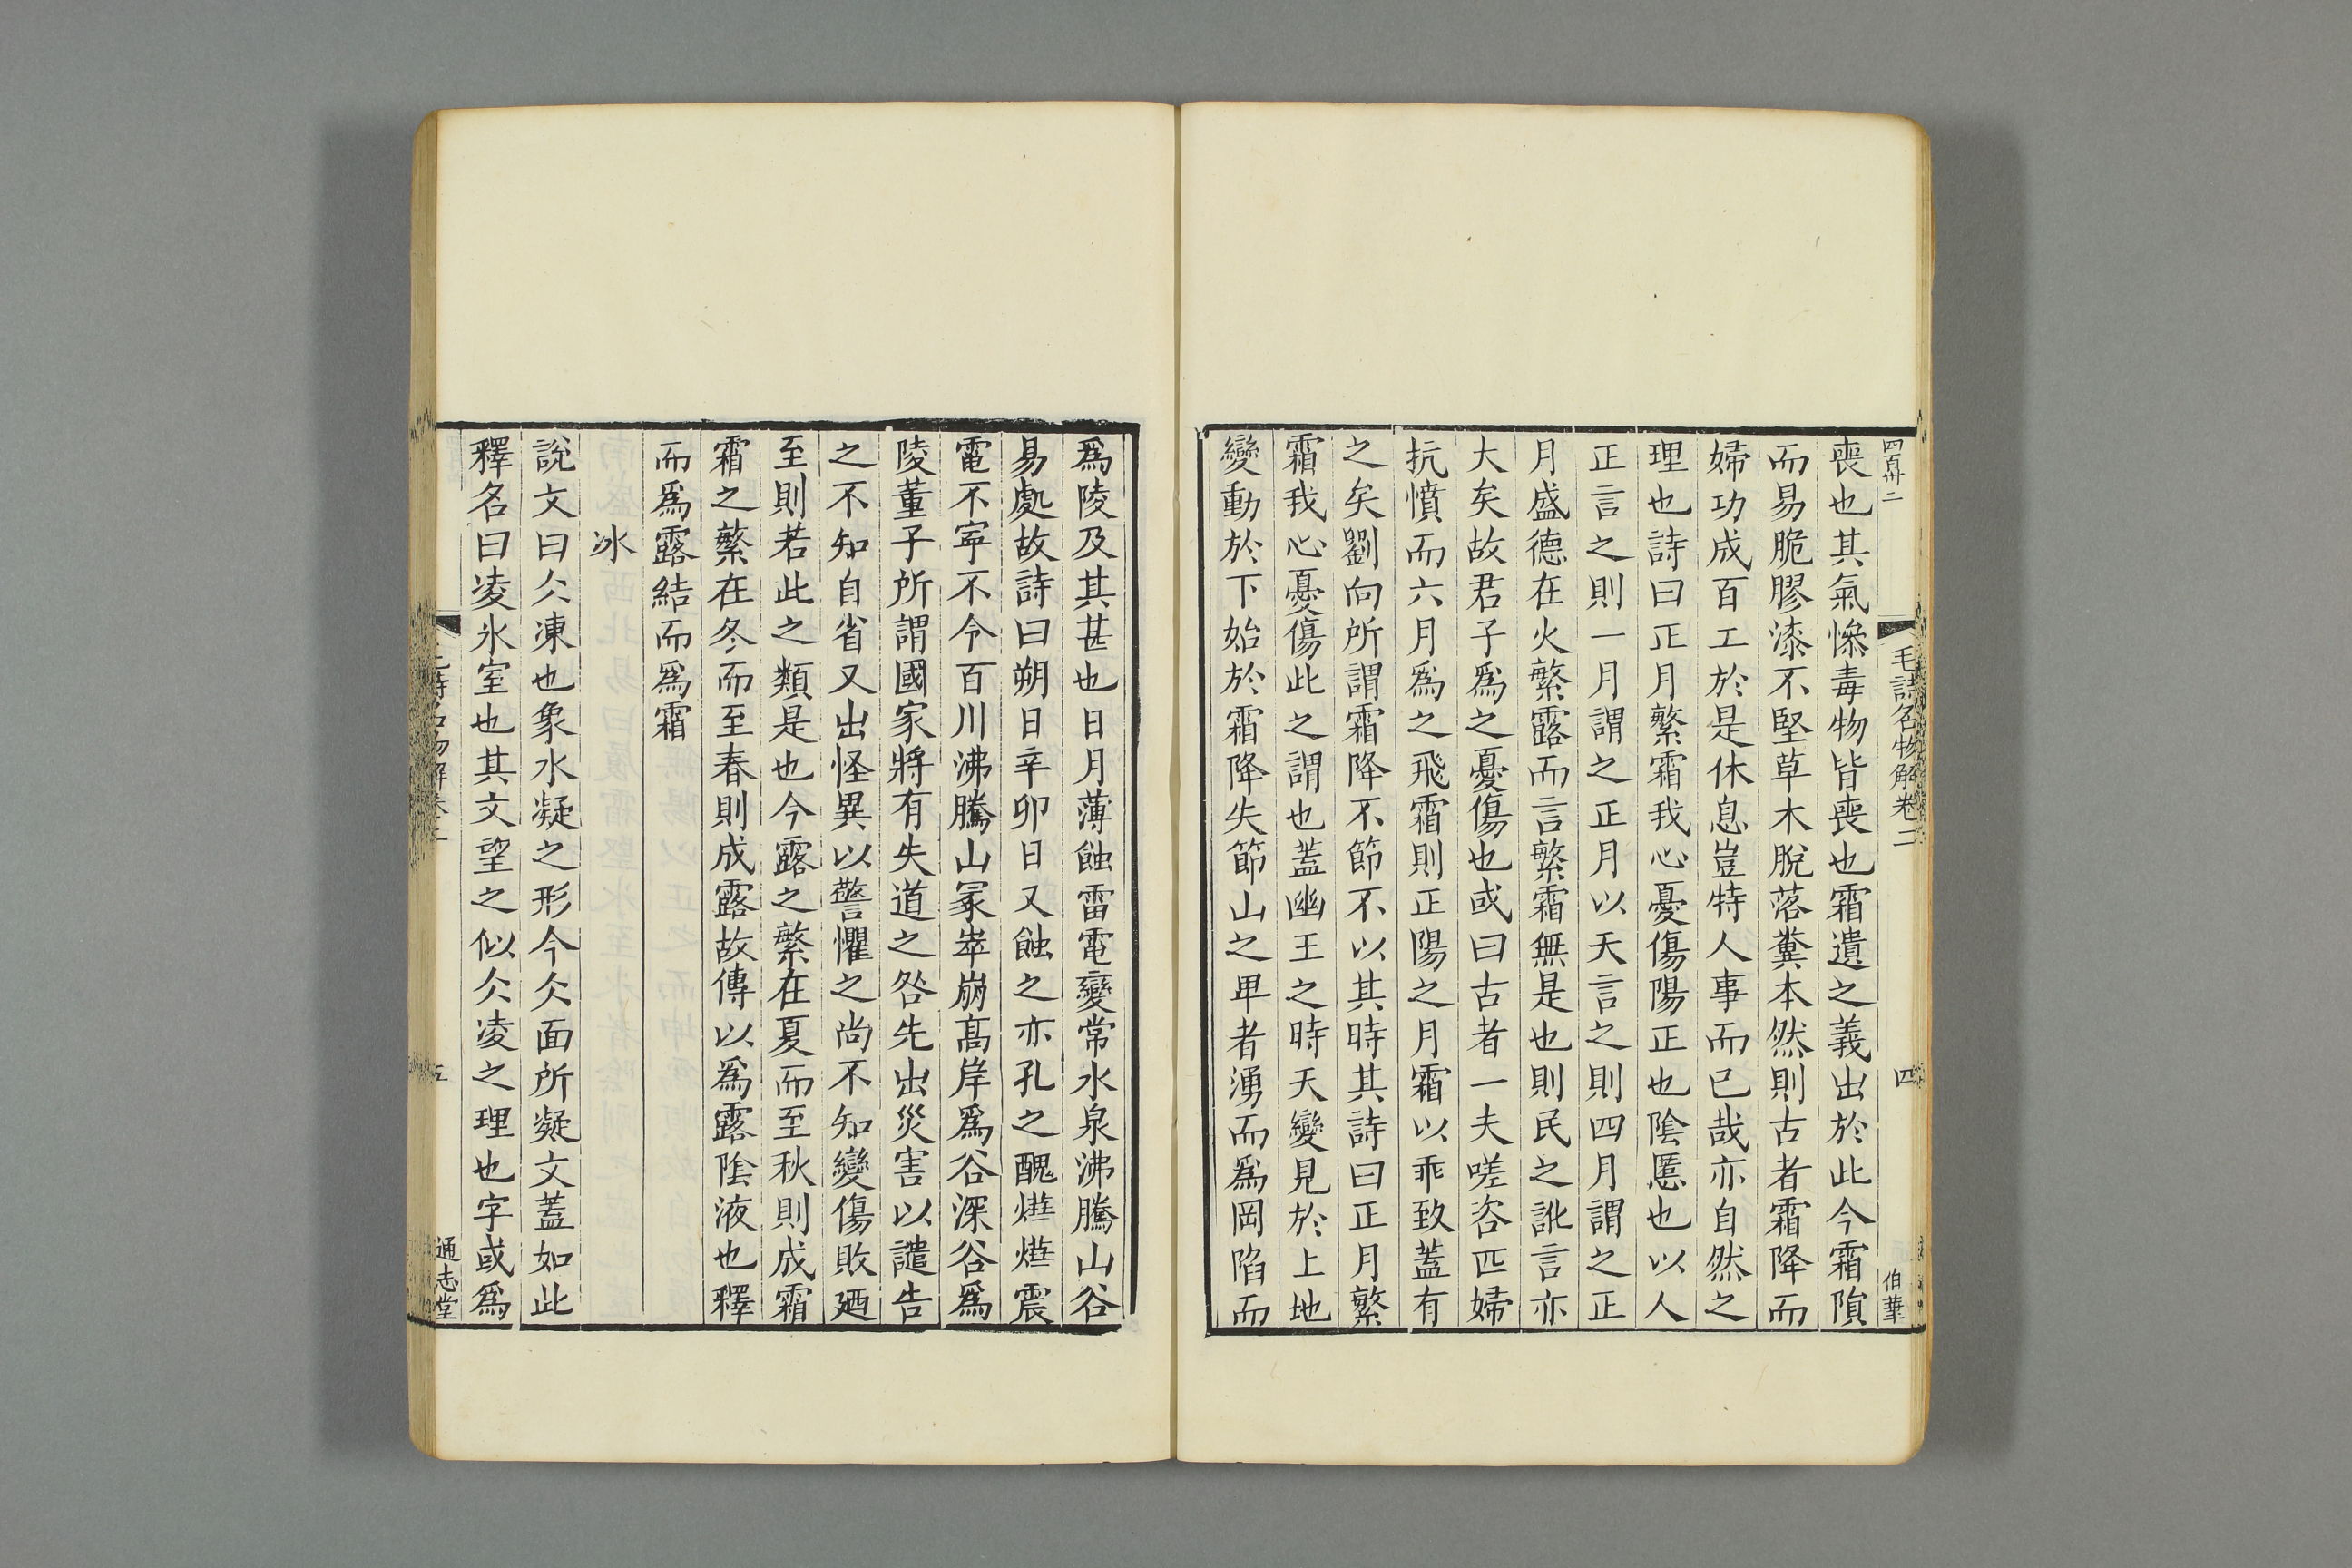 四百卅二
毛詩名物解卷二
四
伯華
喪也其氣慘毒物皆喪也霜遺之義出於此今霜隕
而易脆膠漆不堅草木脫落糞本然則古者霜降而
婦功成百工於是休息豈特人事而已哉亦自然之
理也詩曰正月繁霜我心憂傷陽正也陰慝也以人
正言之則一月謂之正月以天言之則四月謂之正
月盛德在火繁露而言繁霜無是也則民之訛言亦
大矣故君子爲之憂傷也或曰古者一夫嗟咨匹婦
抗憤而六月爲之飛霜則正陽之月霜以乖致蓋有
之矣劉向所謂霜降不節不以其時其詩曰正月繁
霜我心憂傷此之謂也蓋幽王之時天變見於上地
變動於下始於霜降失節山之卑者湧而爲岡陷而
爲陵及其甚也日月薄蝕雷電變常水泉沸騰山谷
易處故詩曰朔日辛卯日又蝕之亦孔之醜爗爗震
電不寧不令百川沸騰山冢崒崩高岸爲谷深谷爲
陵董子所謂國家將有失道之咎先出災害以譴告
之不知自省又出怪異以警懼之尚不知變傷敗廼
至則若此之類是也今露之繁在夏而至秋則成霜
霜之繁在冬而至春則成露故傳以爲露陰液也釋
而爲露結而爲霜
冰
說文曰仌凍也象水凝之形今仌面所凝文蓋如此
釋名曰凌氷室也其文望之似仌凌之理也字或爲
五
通志堂